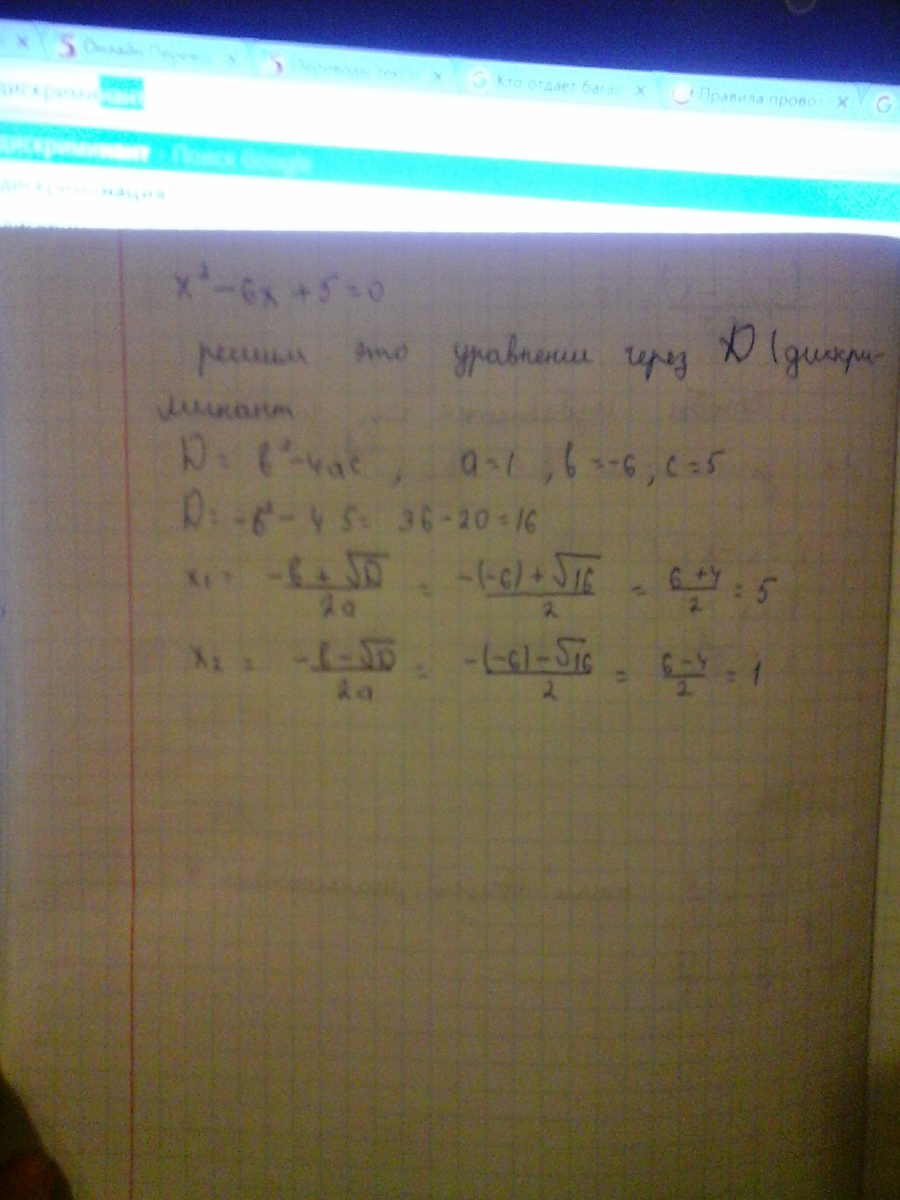 Онлайн Перев
Переводы текс
Кто отдает бага
Правила прово
дискриминант
дискриминант - Поиск Google
дискриминация
x² - 6x + 5 = 0
решим это уравнение через D (дискри-
минант
D = b² - 4ac , a = 1 , b = -6 , c = 5
D = -6² - 4 5 = 36 - 20 = 16
x₁ = -b + √D / 2a = -(-6) + √16 / 2 = 6 + 4 / 2 = 5
x₂ = -b - √D / 2a = -(-6) - √16 / 2 = 6 - 4 / 2 = 1